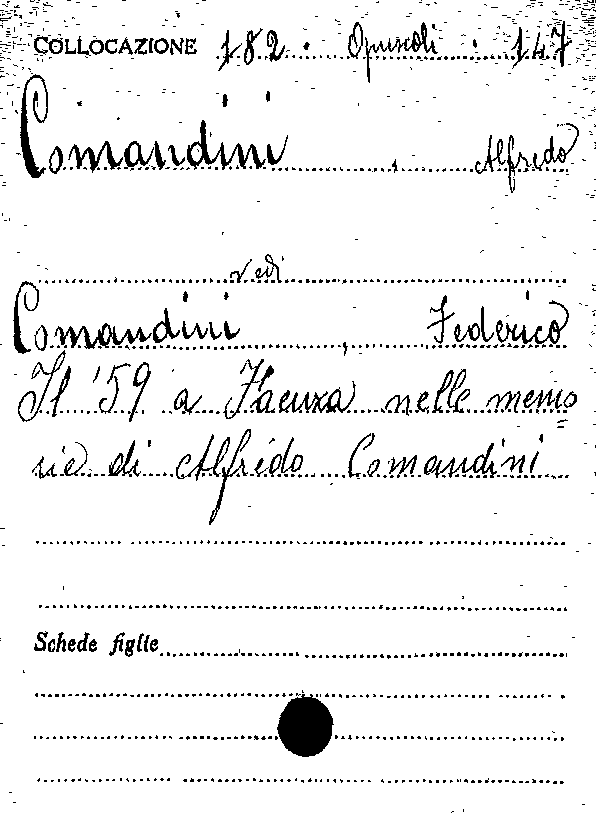 COLLOCAZIONE 182 . Opuscoli . 147
Comandini , Alfredo
vedi
Comandini , Federico
Il '59 a Faenza nelle memo=
rie di Alfredo Comandini
Schede figlie